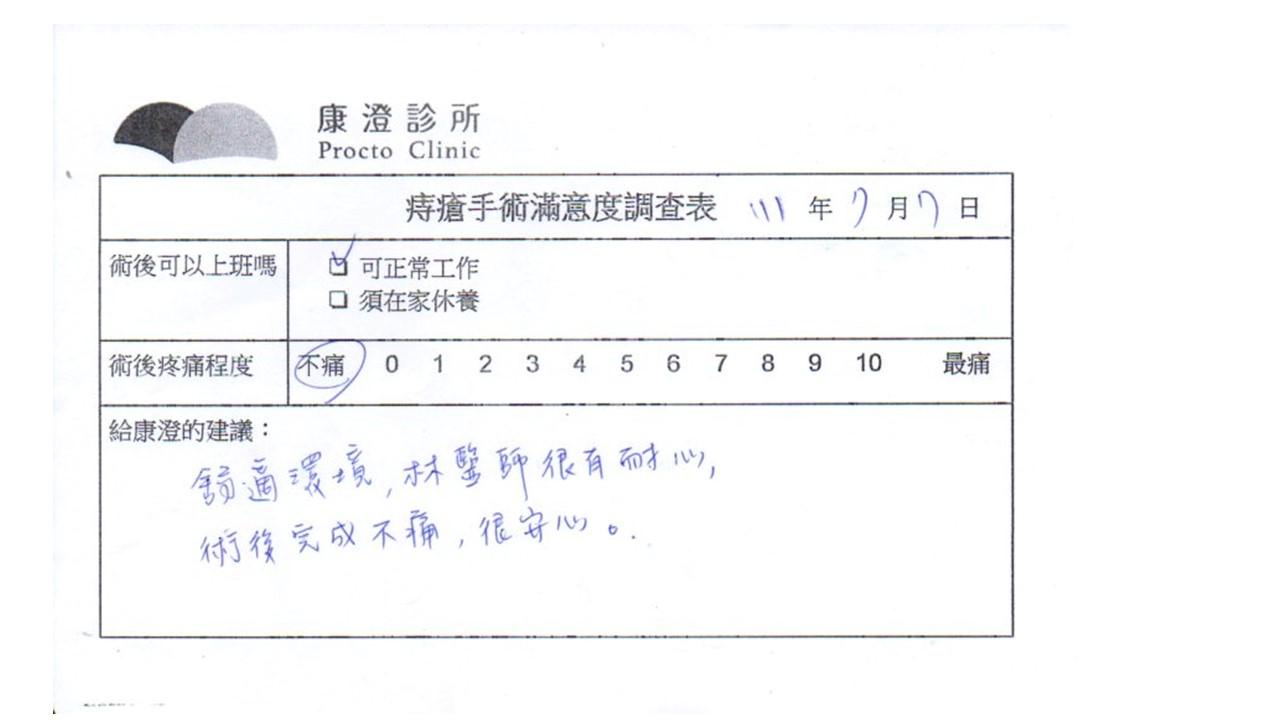 康澄診所
Procto Clinic
痔瘡手術滿意度調查表 111 年 7 月 7 日
術後可以上班嗎
可正常工作
須在家休養
術後疼痛程度 不痛 0 1 2 3 4 5 6 7 8 9 10 最痛
給康澄的建議：
舒適環境，林醫師很有耐心，
術後完成不痛，很安心。